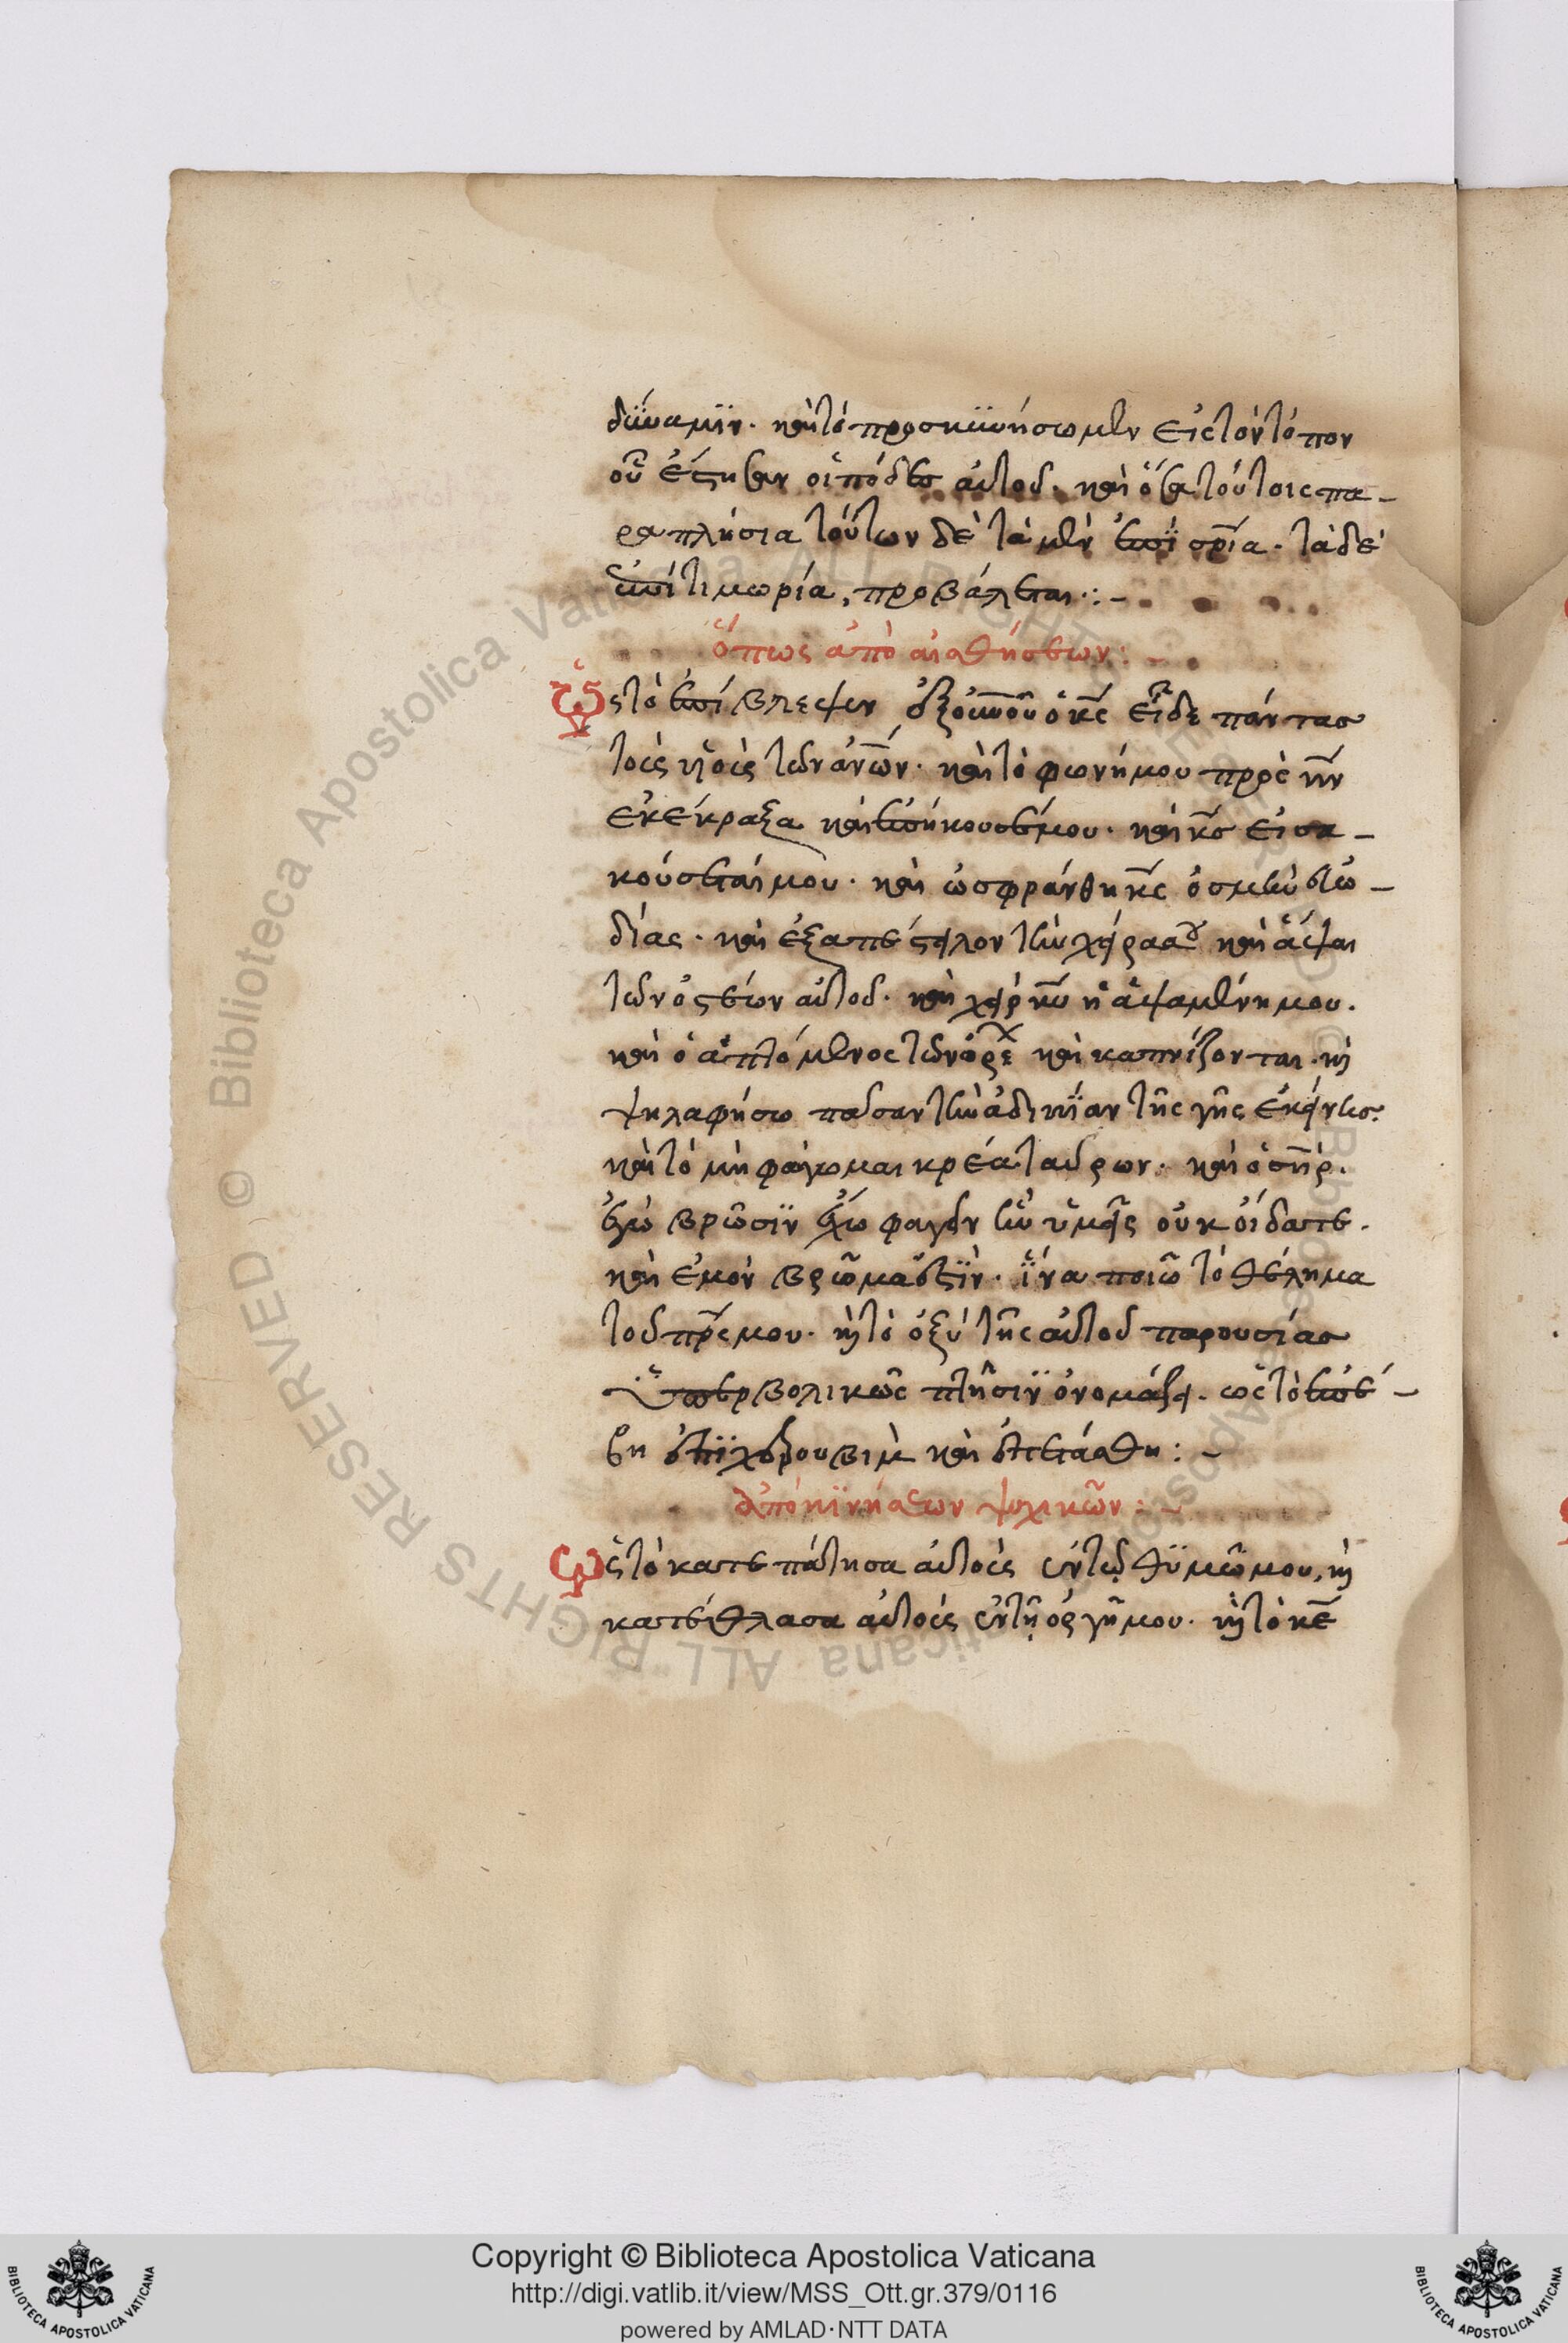 δϋναμϊν. καὶ τὸ προσκϋνήσωμεν εἰς τὸν τόπον
οὗ ἔστησαν οἱ πόδες αὐτοῦ. καὶ ὅσα τούτοις πα-
ραπλήσια τούτων δὲ τὰ μὲν ἐπϊ σρία. τὰ δὲ
ἐπὶ τιμωρία, προβάλεται:-
ὅπως ἀπὸ αἰσθήσεων:-
Ὡς τὸ ἐπίβλεψεν ἐξ οὐνοῦ ὁ κς εἶδε πάντας
τοὺς υἱοὺς τῶν ἀνων. καὶ τὸ φωνή μου πρὸς κν
ἐκέκραξα καὶ ἐπήκουσέ μου. καὶ κς εἰσα-
κούσεταί μου. καὶ ὠσφράνθη κς ὀσμὴν εὐω-
δίας. καὶ ἐξαπέστειλον τὴν χεῖρα σου καὶ ἅψαι
τῶν ὀστέων αὐτοῦ. καὶ χεὶρ κυ ἡ ἁψαμένη μου.
καὶ ὁ ἁπτόμενος τῶν ὀρέ καὶ καπνίζονται. καὶ
ψηλαφήσω πᾶσαν τὴν ἀδικϊαν τῆς γῆς ἐκείνης.
καὶ τὸ μὴ φάγωμαι κρέα ταύρων. καὶ ὁ σηρ.
ἐγὼ βρῶσϊν ἔχω φαγεῖν ἣν ὑμεῖς οὐκ οἴδατε.
καὶ ἐμὸν βρῶμα ἐστϊν. ἵνα ποιῶ τὸ θέλημα
τοῦ πρς μου. καὶ τὸ ὀξὺ τῆς αὐτοῦ παρουσίας
ὑπερβολικῶς πτῆσιν ὀνομάζει. ὡς τὸ ἐπέ-
βη ἐπϊ χερουβιμ καὶ ἐπετάσθη:-
Ἀπὸ κϊνήσεων ψυχικῶν:-
Ὡς τὸ κατεπάτησα αὐτοὺς ἐν τῷ θϋμῶ μου, καὶ
κατέθλασα αὐτοὺς ἐν τῇ ὀργῇ μου. καὶ τὸ κε
Copyright © Biblioteca Apostolica Vaticana
http://digi.vatlib.it/view/MSS_Ott.gr.379/0116
powered by AMLAD·NTT DATA
BIBLIOTECA APOSTOLICA VATICANA
BIBLIOTECA APOSTOLICA VATICANA
Biblioteca Apostolica Vaticana ALL RIGHTS RESERVED ©